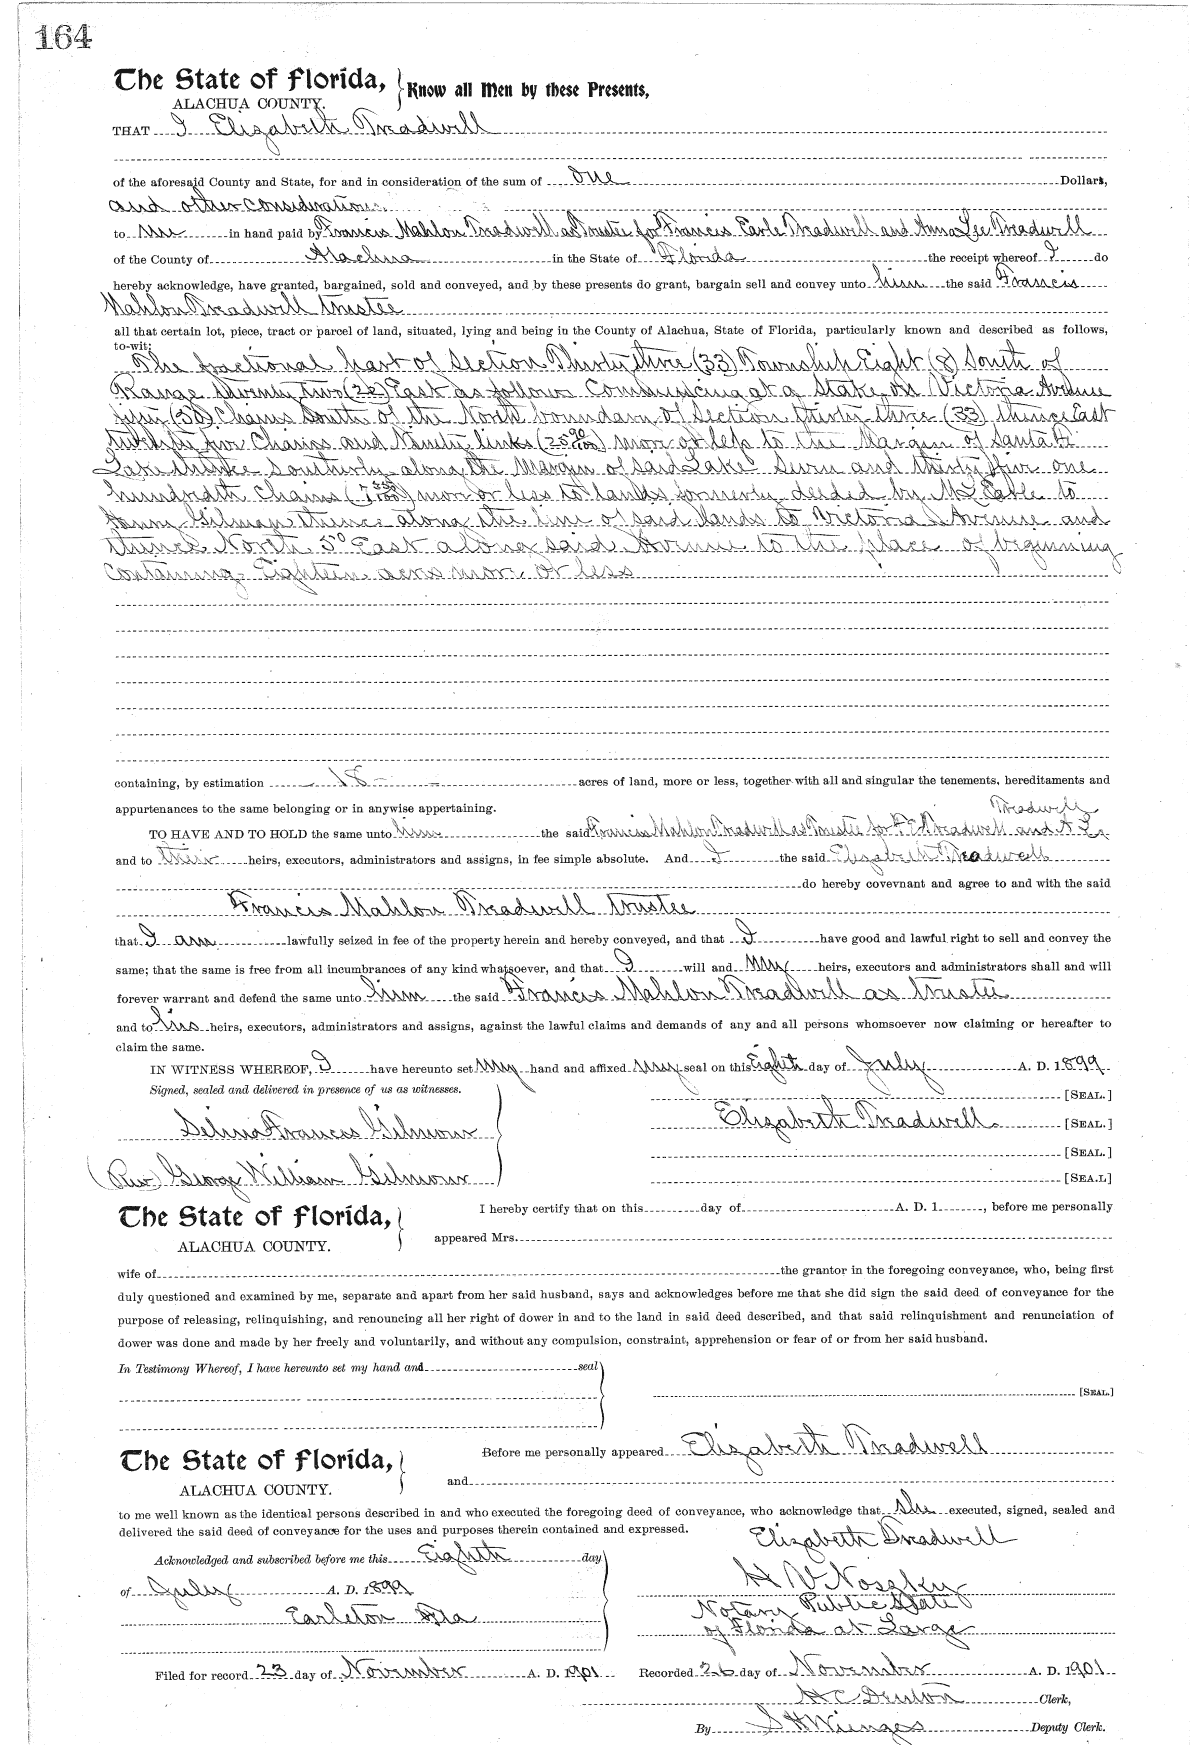 164
The State of Florida,
ALACHUA COUNTY.
Know all Men by these Presents,
THAT I Elizabeth Treadwell
of the aforesaid County and State, for and in consideration of the sum of one Dollars,
and other Considerations
to me in hand paid by Francis Mahlon Treadwell as Trustee for Francis Earle Treadwell and Anna Lee Treadwell
of the County of Alachua in the State of Florida the receipt whereof I do
hereby acknowledge, have granted, bargained, sold and conveyed, and by these presents do grant, bargain sell and convey unto him the said Francis
Mahlon Treadwell trustee
all that certain lot, piece, tract or parcel of land, situated, lying and being in the County of Alachua, State of Florida, particularly known and described as follows,
to-wit:
The fractional part of Section Thirty three (33) Township Eight (8) South of
Range twenty two (22) East as follows Commencing at a Stake on Victoria Avenue
Chains South of the North boundary of Section thirty three (33) thence East
twenty five Chains and Ninety links (25 90/100) more or less to the Margin of Santa Fe
Lake thence Southerly along the Margin of said Lake Seven and thirty five one
hundredth Chains (7 35/100) more or less to lands formerly deeded by to
Gilman thence along the line of said lands to Victoria Avenue and
thence North 5° East along said Avenue to the place of beginning
Containing Eighteen acres more or less
containing, by estimation 18 acres of land, more or less, together with all and singular the tenements, hereditaments and
appurtenances to the same belonging or in anywise appertaining.
Treadwell
TO HAVE AND TO HOLD the same unto him the said Francis Mahlon Treadwell as Trustee for F. E. Treadwell and A L
and to their heirs, executors, administrators and assigns, in fee simple absolute. And I the said Elizabeth Treadwell
do hereby covevnant and agree to and with the said
Francis Mahlon Treadwell trustee
that I am lawfully seized in fee of the property herein and hereby conveyed, and that I have good and lawful right to sell and convey the
same; that the same is free from all incumbrances of any kind whatsoever, and that I will and my heirs, executors and administrators shall and will
forever warrant and defend the same unto him the said Francis Mahlon Treadwell as trustee
and to his heirs, executors, administrators and assigns, against the lawful claims and demands of any and all persons whomsoever now claiming or hereafter to
claim the same.
IN WITNESS WHEREOF, I have hereunto set my hand and affixed my seal on this Eighth day of July A. D. 1899
Signed, sealed and delivered in presence of us as witnesses. [SEAL.]
Selina Francis Gilmour Elizabeth Treadwell [SEAL.]
[SEAL.]
(Rev) George William Gilmour [SEAL]
The State of Florida,
ALACHUA COUNTY.
I hereby certify that on this day of A. D. 1 , before me personally
appeared Mrs.
wife of the grantor in the foregoing conveyance, who, being first
duly questioned and examined by me, separate and apart from her said husband, says and acknowledges before me that she did sign the said deed of conveyance for the
purpose of releasing, relinquishing, and renouncing all her right of dower in and to the land in said deed described, and that said relinquishment and renunciation of
dower was done and made by her freely and voluntarily, and without any compulsion, constraint, apprehension or fear of or from her said husband.
In Testimony Whereof, I have hereunto set my hand and seal
[SEAL.]
The State of Florida,
ALACHUA COUNTY.
Before me personally appeared Elizabeth Treadwell
and
to me well known as the identical persons described in and who executed the foregoing deed of conveyance, who acknowledge that she executed, signed, sealed and
delivered the said deed of conveyance for the uses and purposes therein contained and expressed.
Elizabeth Treadwell
Acknowledged and subscribed before me this Eighth day
of July A. D. 1899
H V
Earleton Fla
Notary Public State
of Florida at Large
Filed for record 23 day of November A. D. 1901 Recorded 26 day of November A. D. 1901
H C Denton Clerk,
By S H Wienges Deputy Clerk.